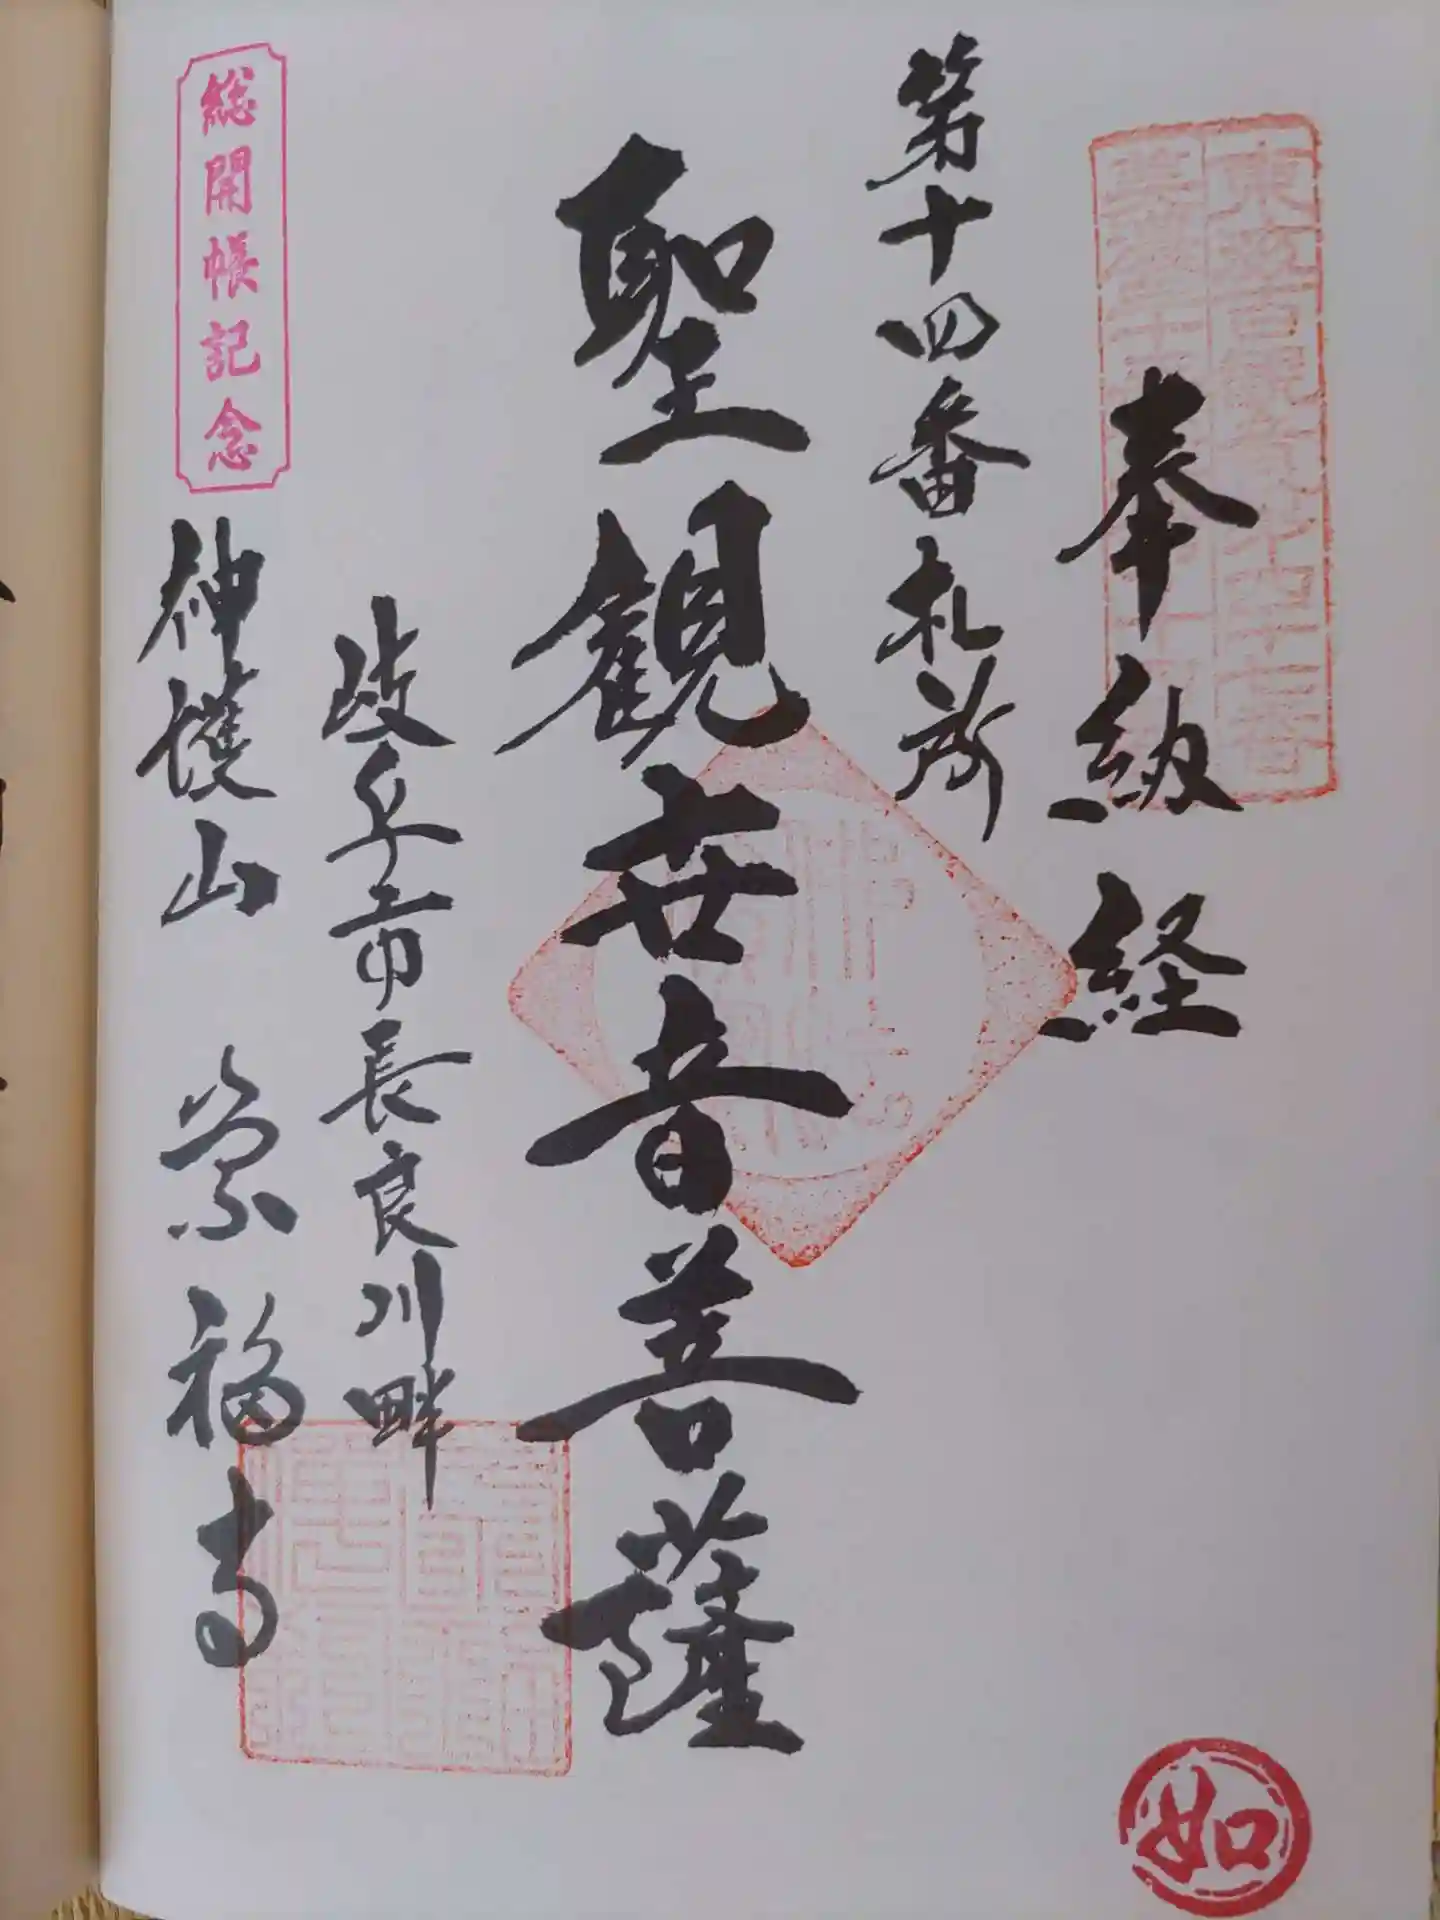 奉納経
第十四番札所
聖観世音菩薩
岐阜市長良川畔
総開帳記念
神護山 崇福寺
如